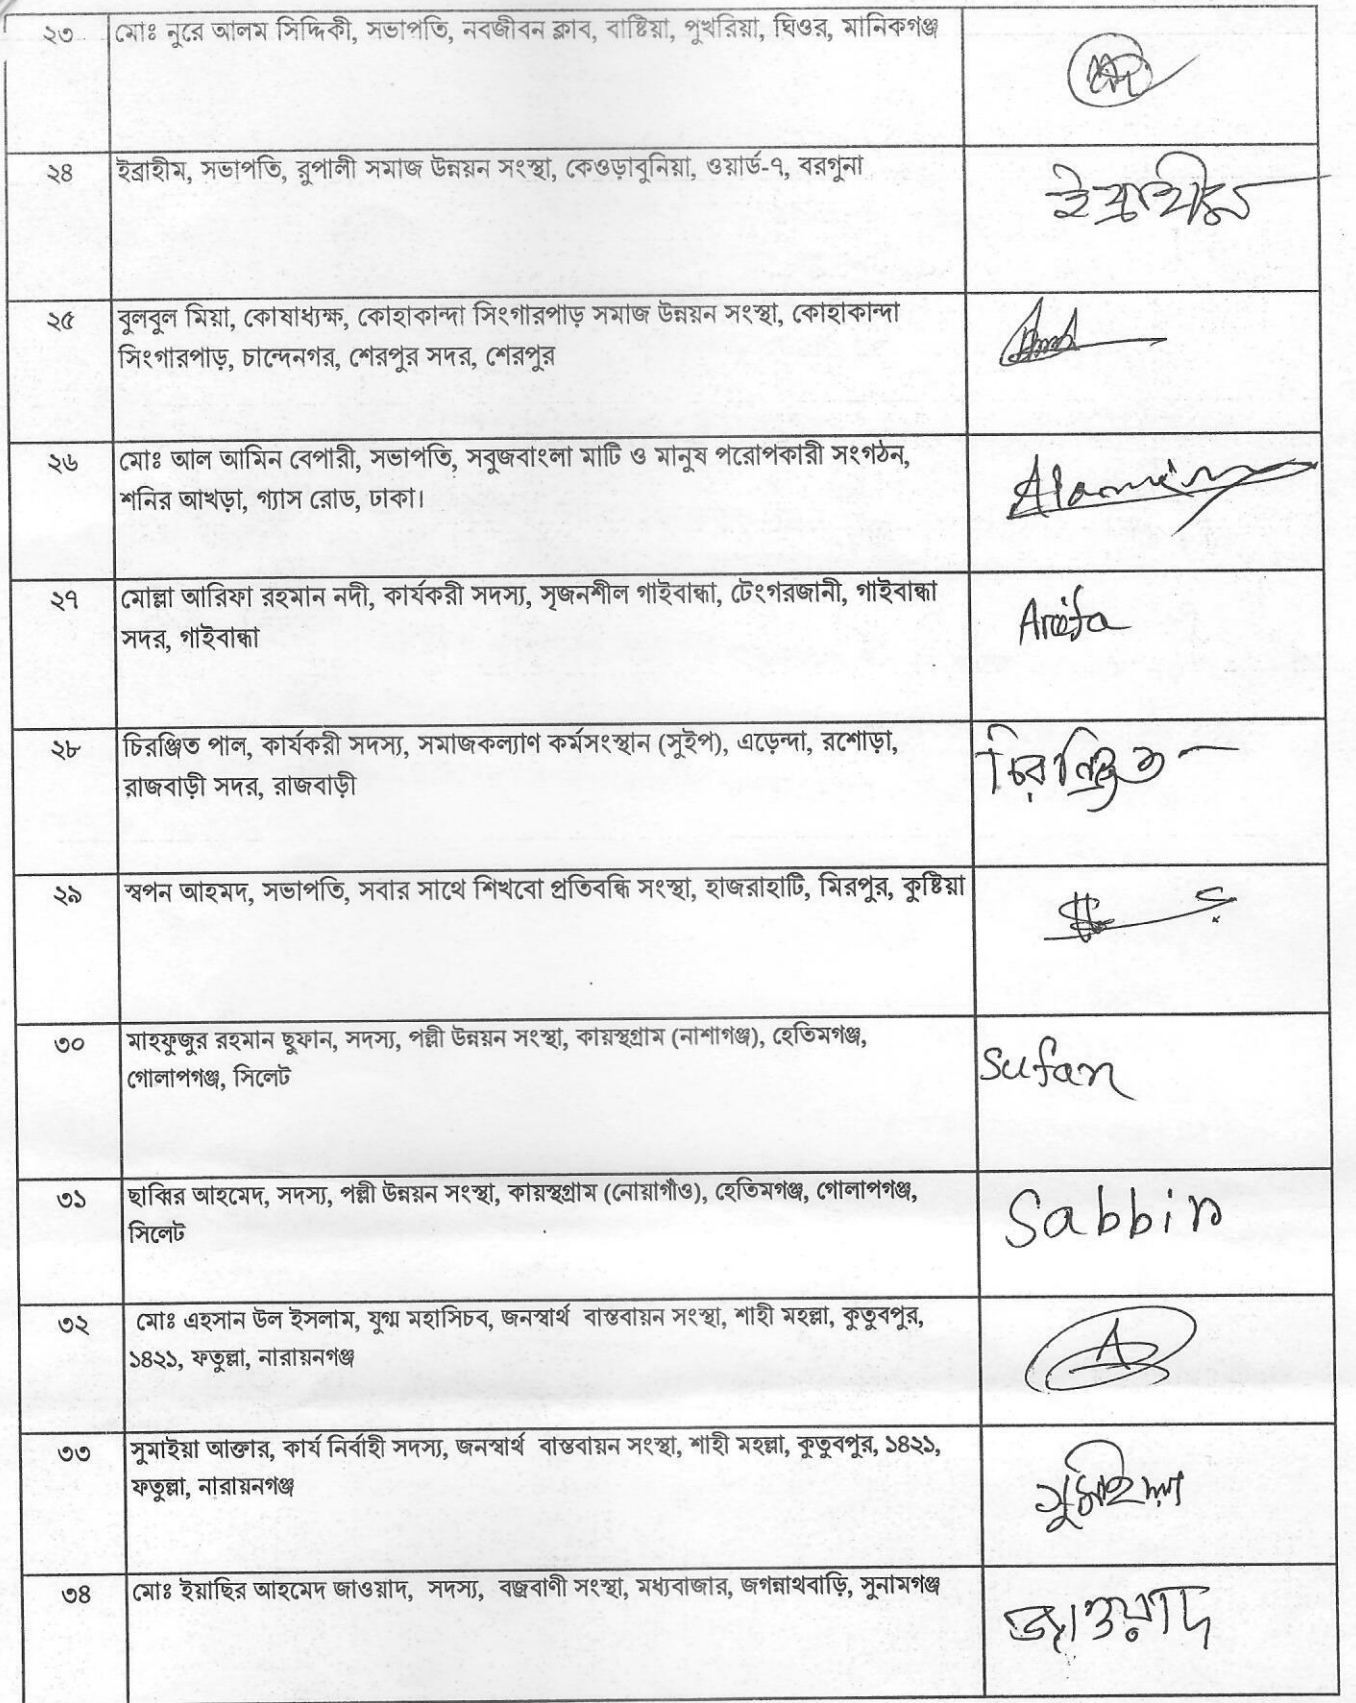 ২৩ মোঃ নুরে আলম সিদ্দিকী, সভাপতি, নবজীবন ক্লাব, বাষ্টিয়া, পুখরিয়া, ঘিওর, মানিকগঞ্জ
২৪ ইব্রাহীম, সভাপতি, রুপালী সমাজ উন্নয়ন সংস্থা, কেওড়াবুনিয়া, ওয়ার্ড-৭, বরগুনা
ইব্রাহীম
২৫ বুলবুল মিয়া, কোষাধ্যক্ষ, কোহাকান্দা সিংগারপাড় সমাজ উন্নয়ন সংস্থা, কোহাকান্দা
সিংগারপাড়, চান্দেনগর, শেরপুর সদর, শেরপুর
২৬ মোঃ আল আমিন বেপারী, সভাপতি, সবুজবাংলা মাটি ও মানুষ পরোপকারী সংগঠন,
শনির আখড়া, গ্যাস রোড, ঢাকা।
Alamin
২৭ মোল্লা আরিফা রহমান নদী, কার্যকরী সদস্য, সৃজনশীল গাইবান্ধা, টেংগরজানী, গাইবান্ধা
সদর, গাইবান্ধা
Arifa
২৮ চিরঞ্জিত পাল, কার্যকরী সদস্য, সমাজকল্যাণ কর্মসংস্থান (সুইপ), এড়েন্দা, রশোড়া,
রাজবাড়ী সদর, রাজবাড়ী
চিরঞ্জিত
২৯ স্বপন আহমদ, সভাপতি, সবার সাথে শিখবো প্রতিবন্ধি সংস্থা, হাজরাহাটি, মিরপুর, কুষ্টিয়া
৩০ মাহফুজুর রহমান ছুফান, সদস্য, পল্লী উন্নয়ন সংস্থা, কায়স্থগ্রাম (নাশাগঞ্জ), হেতিমগঞ্জ,
গোলাপগঞ্জ, সিলেট
Sufan
৩১ ছাব্বির আহমেদ, সদস্য, পল্লী উন্নয়ন সংস্থা, কায়স্থগ্রাম (নোয়াগাঁও), হেতিমগঞ্জ, গোলাপগঞ্জ,
সিলেট
Sabbir
৩২ মোঃ এহসান উল ইসলাম, যুগ্ম মহাসিচব, জনস্বার্থ বাস্তবায়ন সংস্থা, শাহী মহল্লা, কুতুবপুর,
১৪২১, ফতুল্লা, নারায়নগঞ্জ
৩৩ সুমাইয়া আক্তার, কার্য নির্বাহী সদস্য, জনস্বার্থ বাস্তবায়ন সংস্থা, শাহী মহল্লা, কুতুবপুর, ১৪২১,
ফতুল্লা, নারায়নগঞ্জ
সুমাইয়া
৩৪ মোঃ ইয়াছির আহমেদ জাওয়াদ, সদস্য, বজ্রবাণী সংস্থা, মধ্যবাজার, জগন্নাথবাড়ি, সুনামগঞ্জ
জাওয়াদ